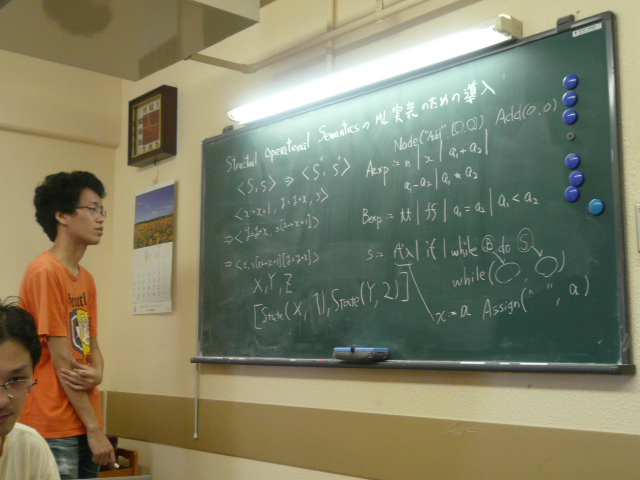 Structual Operational Semanticsの ML 実装のための導入
<S, s> ⇒ <S', s'>
<x:=x+1, y:=y+x, s>
⇒<y:=y+x, s[x↦x+1]>
⇒<ε, s[x↦x+1][y↦y+x]>
X, Y, Z
[State(X, 1), State(Y, 2)]
Node("Add", [O, O]) Add(O, O)
Aexp := n | x | a₁ + a₂ |
a₁ - a₂ | a₁ * a₂
Bexp := tt | ff | a₁ = a₂ | a₁ < a₂
S := 代入 | if | while Ⓑ do Ⓢ
while(◯ ◯)
x := a Assign(" ", a)